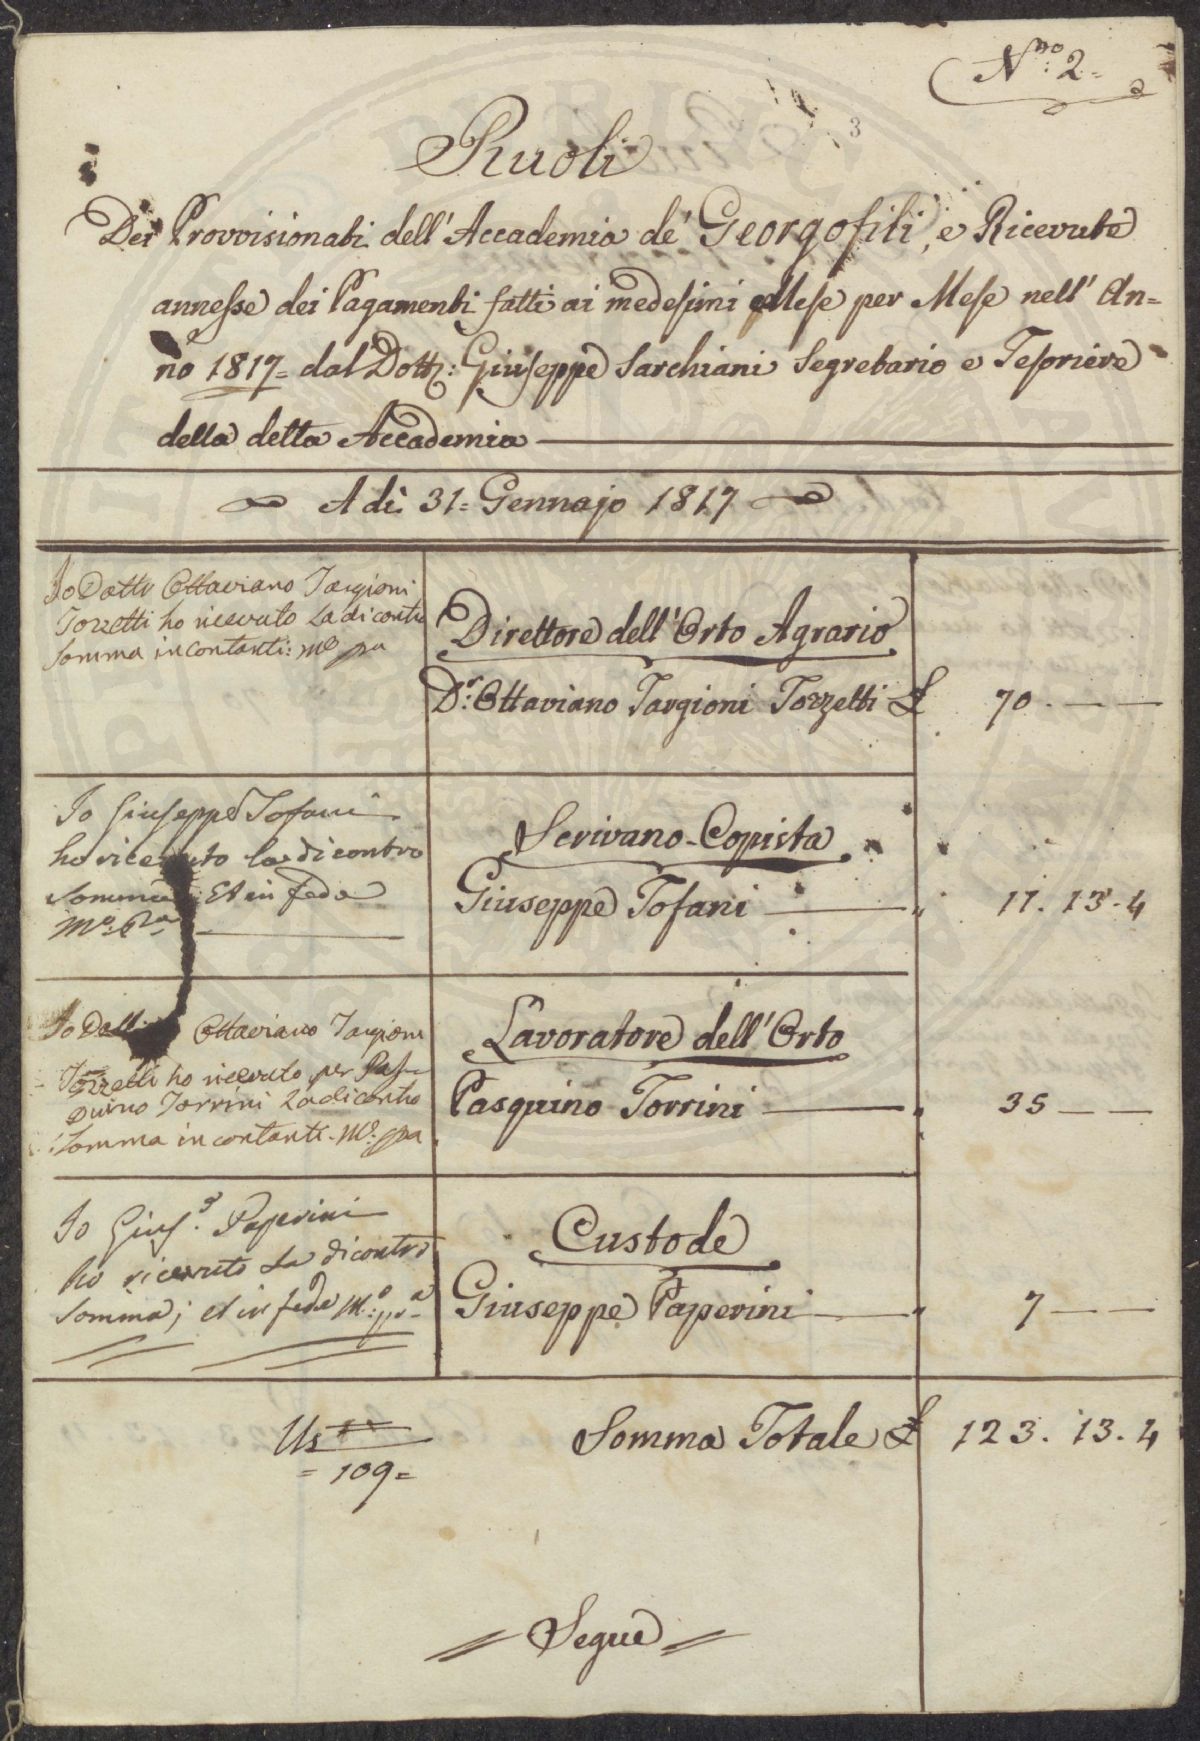 N.ro 2=
3
Ruoli
Dei Provvisionati dell'Accademia de' Georgofili, e Ricevute
annesse dei Pagamenti fatti ai medesimi Mese per Mese nell'An=
no 1817= dal Dott: Giuseppe Sarchiani Segretario e Tesoriere
della detta Accademia
A di 31= Gennajo 1817
Io Dottr Ottaviano Targioni
Tozzetti ho ricevuto La di contro
Somma in contanti: mo pa
Direttore dell'Orto Agrario
Dr. Ottaviano Targioni Tozzetti £ 70. — —
Io Giuseppe Tofani
ho ricevuto la di contro
Somma Et in fede
Mo: pa
Scrivano-Copista
Giuseppe Tofani — " 11. 13. 4
Io Dott Ottaviano Targioni
Tozzetti ho ricevuto per Pas-
quino Torrini La di contro
Somma in contanti. Mo. pa
Lavoratore dell'Orto
Pasquino Torrini — " 35 — —
Io Gius.e Paperini
ho ricevuto La di contro
Somma; et in fede M.o: pp.a
Custode
Giuseppe Paperini — " 7 — —
= 109=
Somma Totale £ 123. 13. 4
Segue